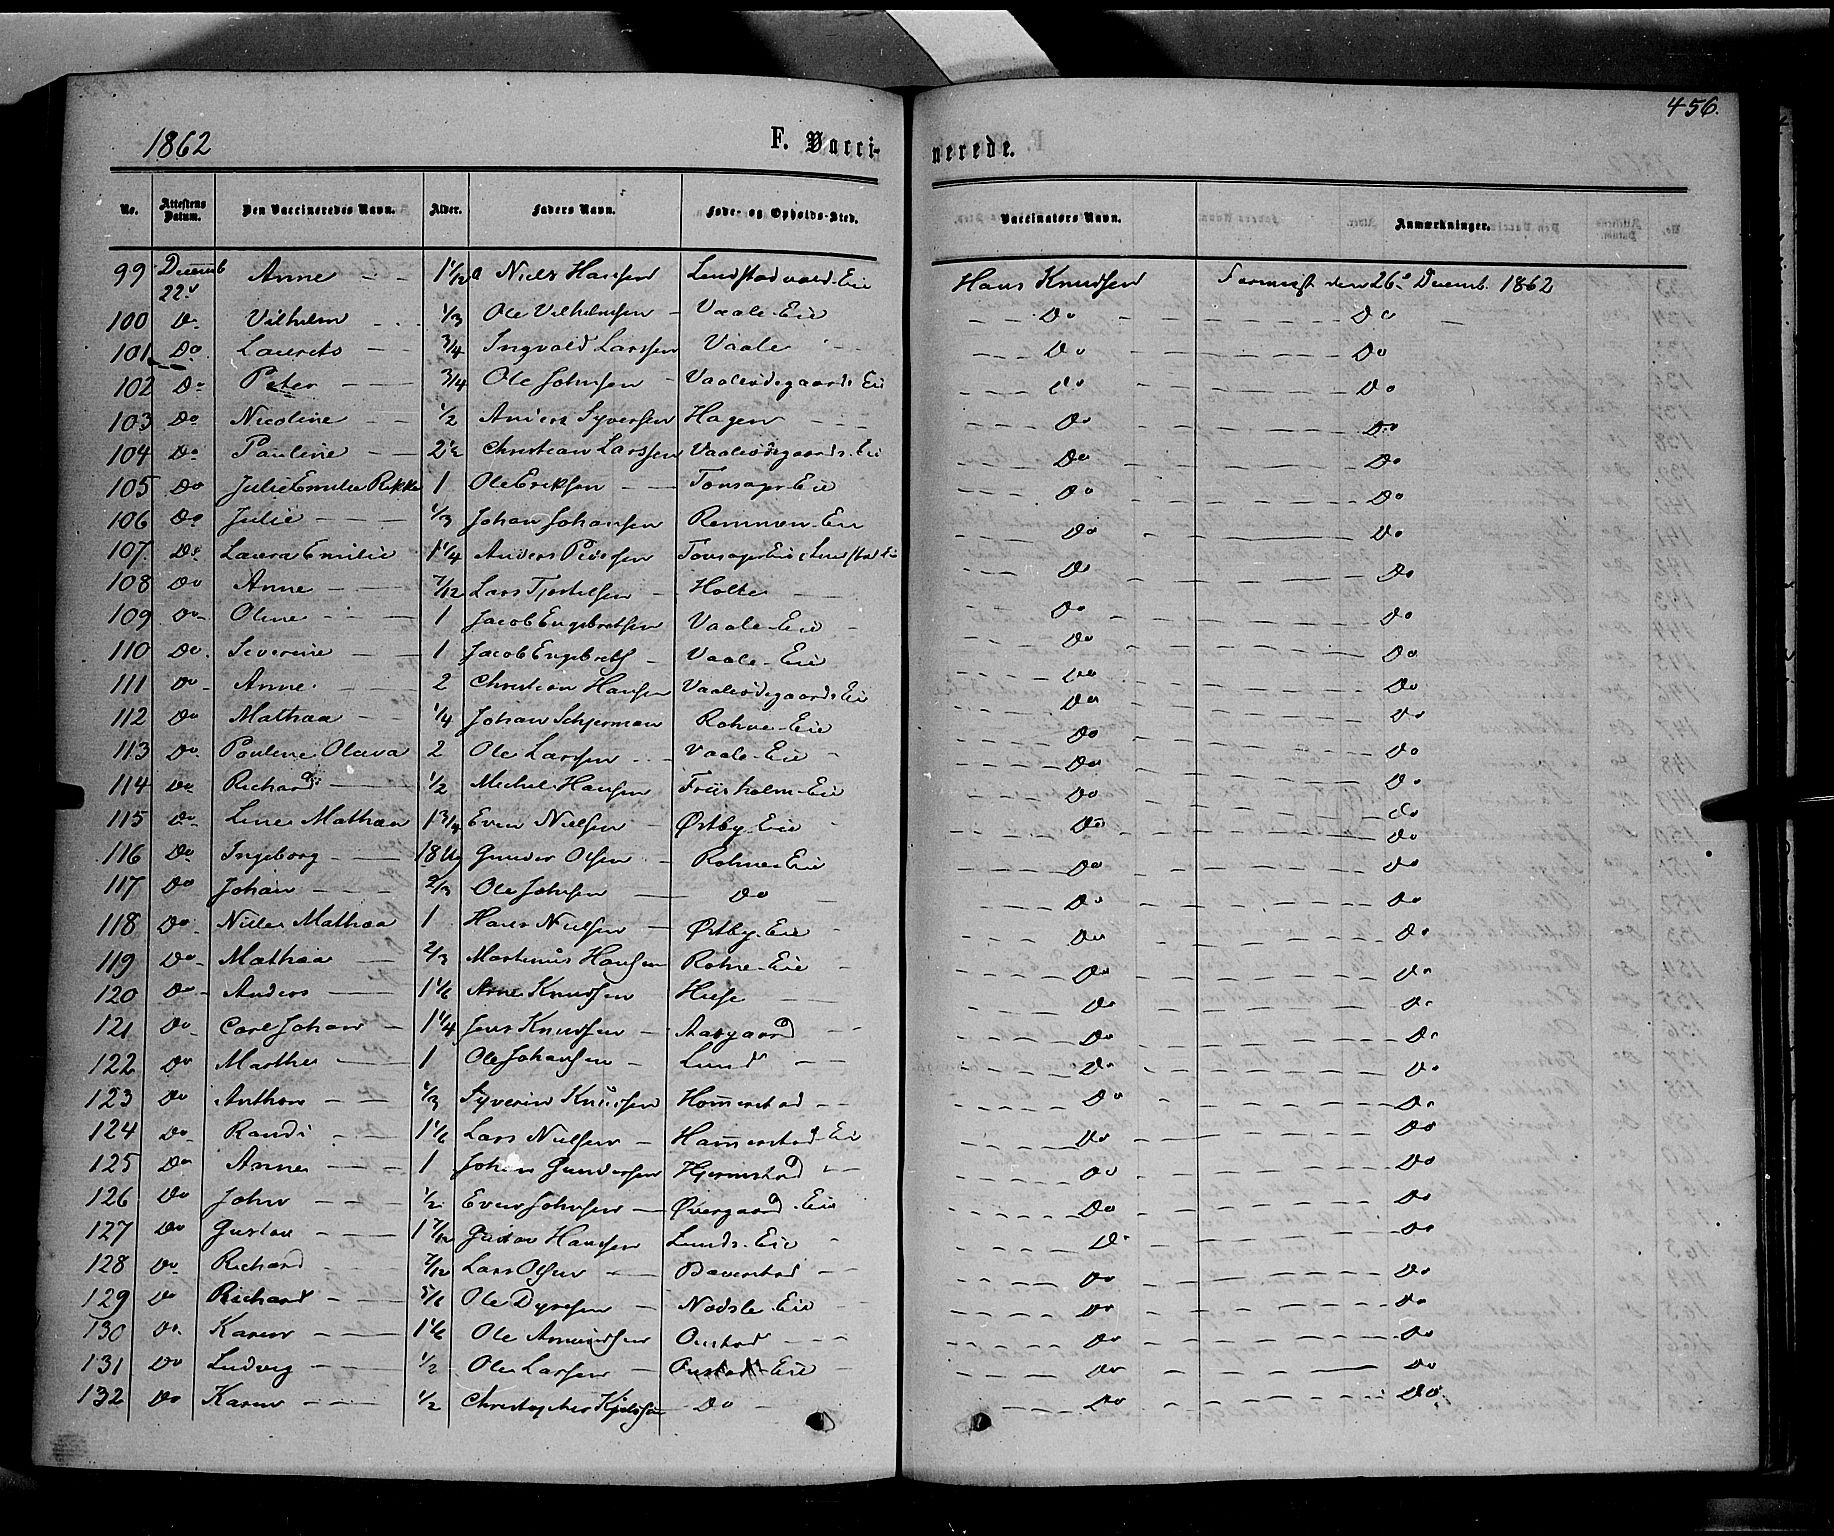 456.
1862 F. Vacci- nerede.
No. Attestens Datum. Den Vaccineredes Navn. Alder. Faders Navn. Føde- og Opholds-Sted. Vaccinators Navn. Anmærkninger.
99 Decemb 22d Anne 1 1/12 Niels Hansen Eie Hans Knudsen den 26 Decemb. 1862
100 Do Vilhelm 1/3 Ole Vilhelmsen Vaale-Eie Do Do
101 Do Laurits 3/4 Ingvald Larssen Vaale Do Do
102 Do Peter 3/4 Ole Johnsen Vaaleødegaards Eie Do Do
103 Do Nicoline 1/2 Anders Syversen Hagen Do Do
104 Do Pauline 2 1/2 Christian Larssen Vaaleødegaards-Eie Do Do
105 Do Julie Emilie Rikke 1 Ole Eriksen Tonsager-Eie Do Do
106 Do Julie 1/3 Johan Johansen Remmen-Eie Do Do
107. Do Laura Emilie 1 1/4 Anders Pedersen Tonsager-Eie Do Do
108 Do Anne 7/12 Lars Holte Do Do
109 Do Oline 1 Jacob Engebretsen Vaale-Eie Do Do
110 Do Severine 1 Jacob Engebrets Vaale-Eie Do Do
111 Do Anne 2 Christian Hansen Vaaleødegaards-Eie Do Do
112 Do Mathea 1/4 Johan Schjerman Rohne-Eie Do Do
113 Do Pauline Olava 2 Ole Larssen Vaale-Eie Do Do
114 Do Richard 1/2 Michel Hansen Friisholm-Eie Do Do
115 Do Line Mathea 1 3/4 Even Nielsen Østby-Eie Do Do
116 Do Ingeborg 18 Ug Gunder Olsen Rohne-Eie Do Do
117 Do Johan 2/3 Ole Johnsen Do Do Do
118 Do Nille Mathea 1 Hans Nielsen Østby-Eie Do Do
119 Do Mathea 2/3 Martinus Hansen Rohne-Eie Do Do
120 Do Anders 1 1/6 Arne Knudsen Do Do
121 Do Carl Johan 1 1/4 Jens Knudsen Aasgaard Do Do
122 Do Marthe 1 Ole Johansen Lund Do Do
123 Do Anthon 1/3 Syverin Knudsen Hammerstad Do Do
124 Do Randi 1 1/6 Lars Nielsen Hammerstad-Eie Do Do
125 Do Anne 1 Johan Gundersen Hjermstad Do Do
126 Do John 1/2 Even Johnsen Øvergaard-Eie Do Do
127 Do Gustav 1 7/12 Gustav Hansen Lunds-Eie Do Do
128 Do Richard 7/12 Lars Olsen Baverstad Do Do
129 Do Richard 5/6 Ole Dyresen Nødsle-Eie Do Do
130 Do Karen 1 1/6 Ole Amundsen Onstad Do Do
131 Do Ludvig 1/2 Ole Larsen Onstad-Eie Do Do
132 Do Karen 1/2 Christopher Do Do Do